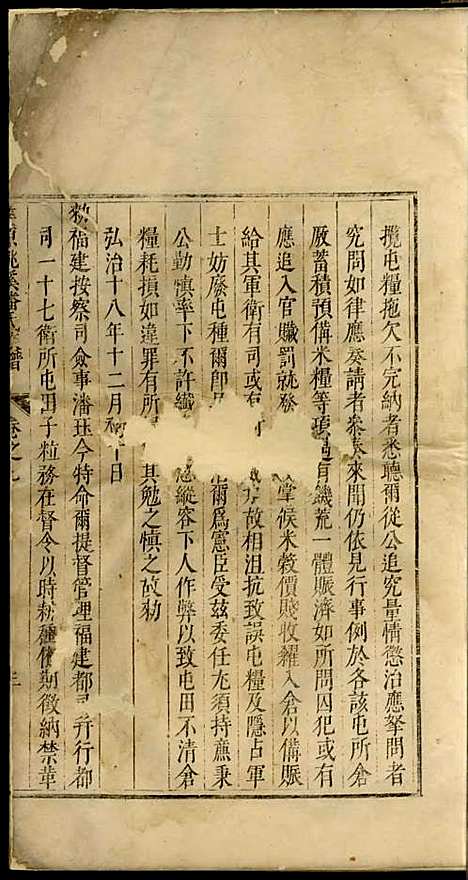 攬屯糧拖欠不完納者悉聽爾從公追究量情懲治應拏問者
究問如律應奏請者叅奏來聞仍依見行事例於各該屯所倉
厫蓄積預備米糧等項遇有饑荒一體賑濟如所問囚犯或有
應追入官贓罰就發 掌候米穀價賤收糴入倉以備賑
給其軍衛有司或有 故相沮抗致誤屯糧及隱占軍
士妨廢屯種爾即 爾爲憲臣受兹委任尤須持廉秉
公勤慎率下不許纖 縱容下人作弊以致屯田不清倉
糧耗損如違罪有所 其勉之慎之故勅
弘治十八年十二月初十日
勅福建按察司僉事潘珏今特命爾提督管理福建都司并行都
司一十七衛所屯田子粒務在督令以時耕種依期徵納禁革
桃溪潘氏 譜
卷之九
三